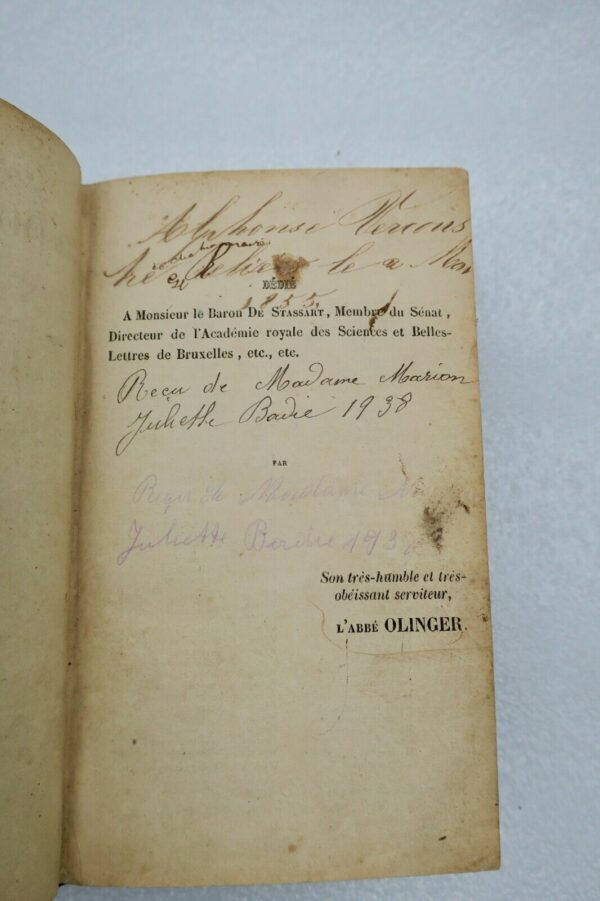 Alphonse
le 2
DÉDIÉ
1855.
A Monsieur le Baron DE STASSART, Membre du Sénat,
Directeur de l'Académie royale des Sciences et Belles-
Lettres de Bruxelles, etc., etc.
Reçu de Madame Marion
Juliette Badié 1938
PAR
Reçu de Madame
Juliette 193
Son très-humble et très-
obéissant serviteur,
L'ABBÉ OLINGER.